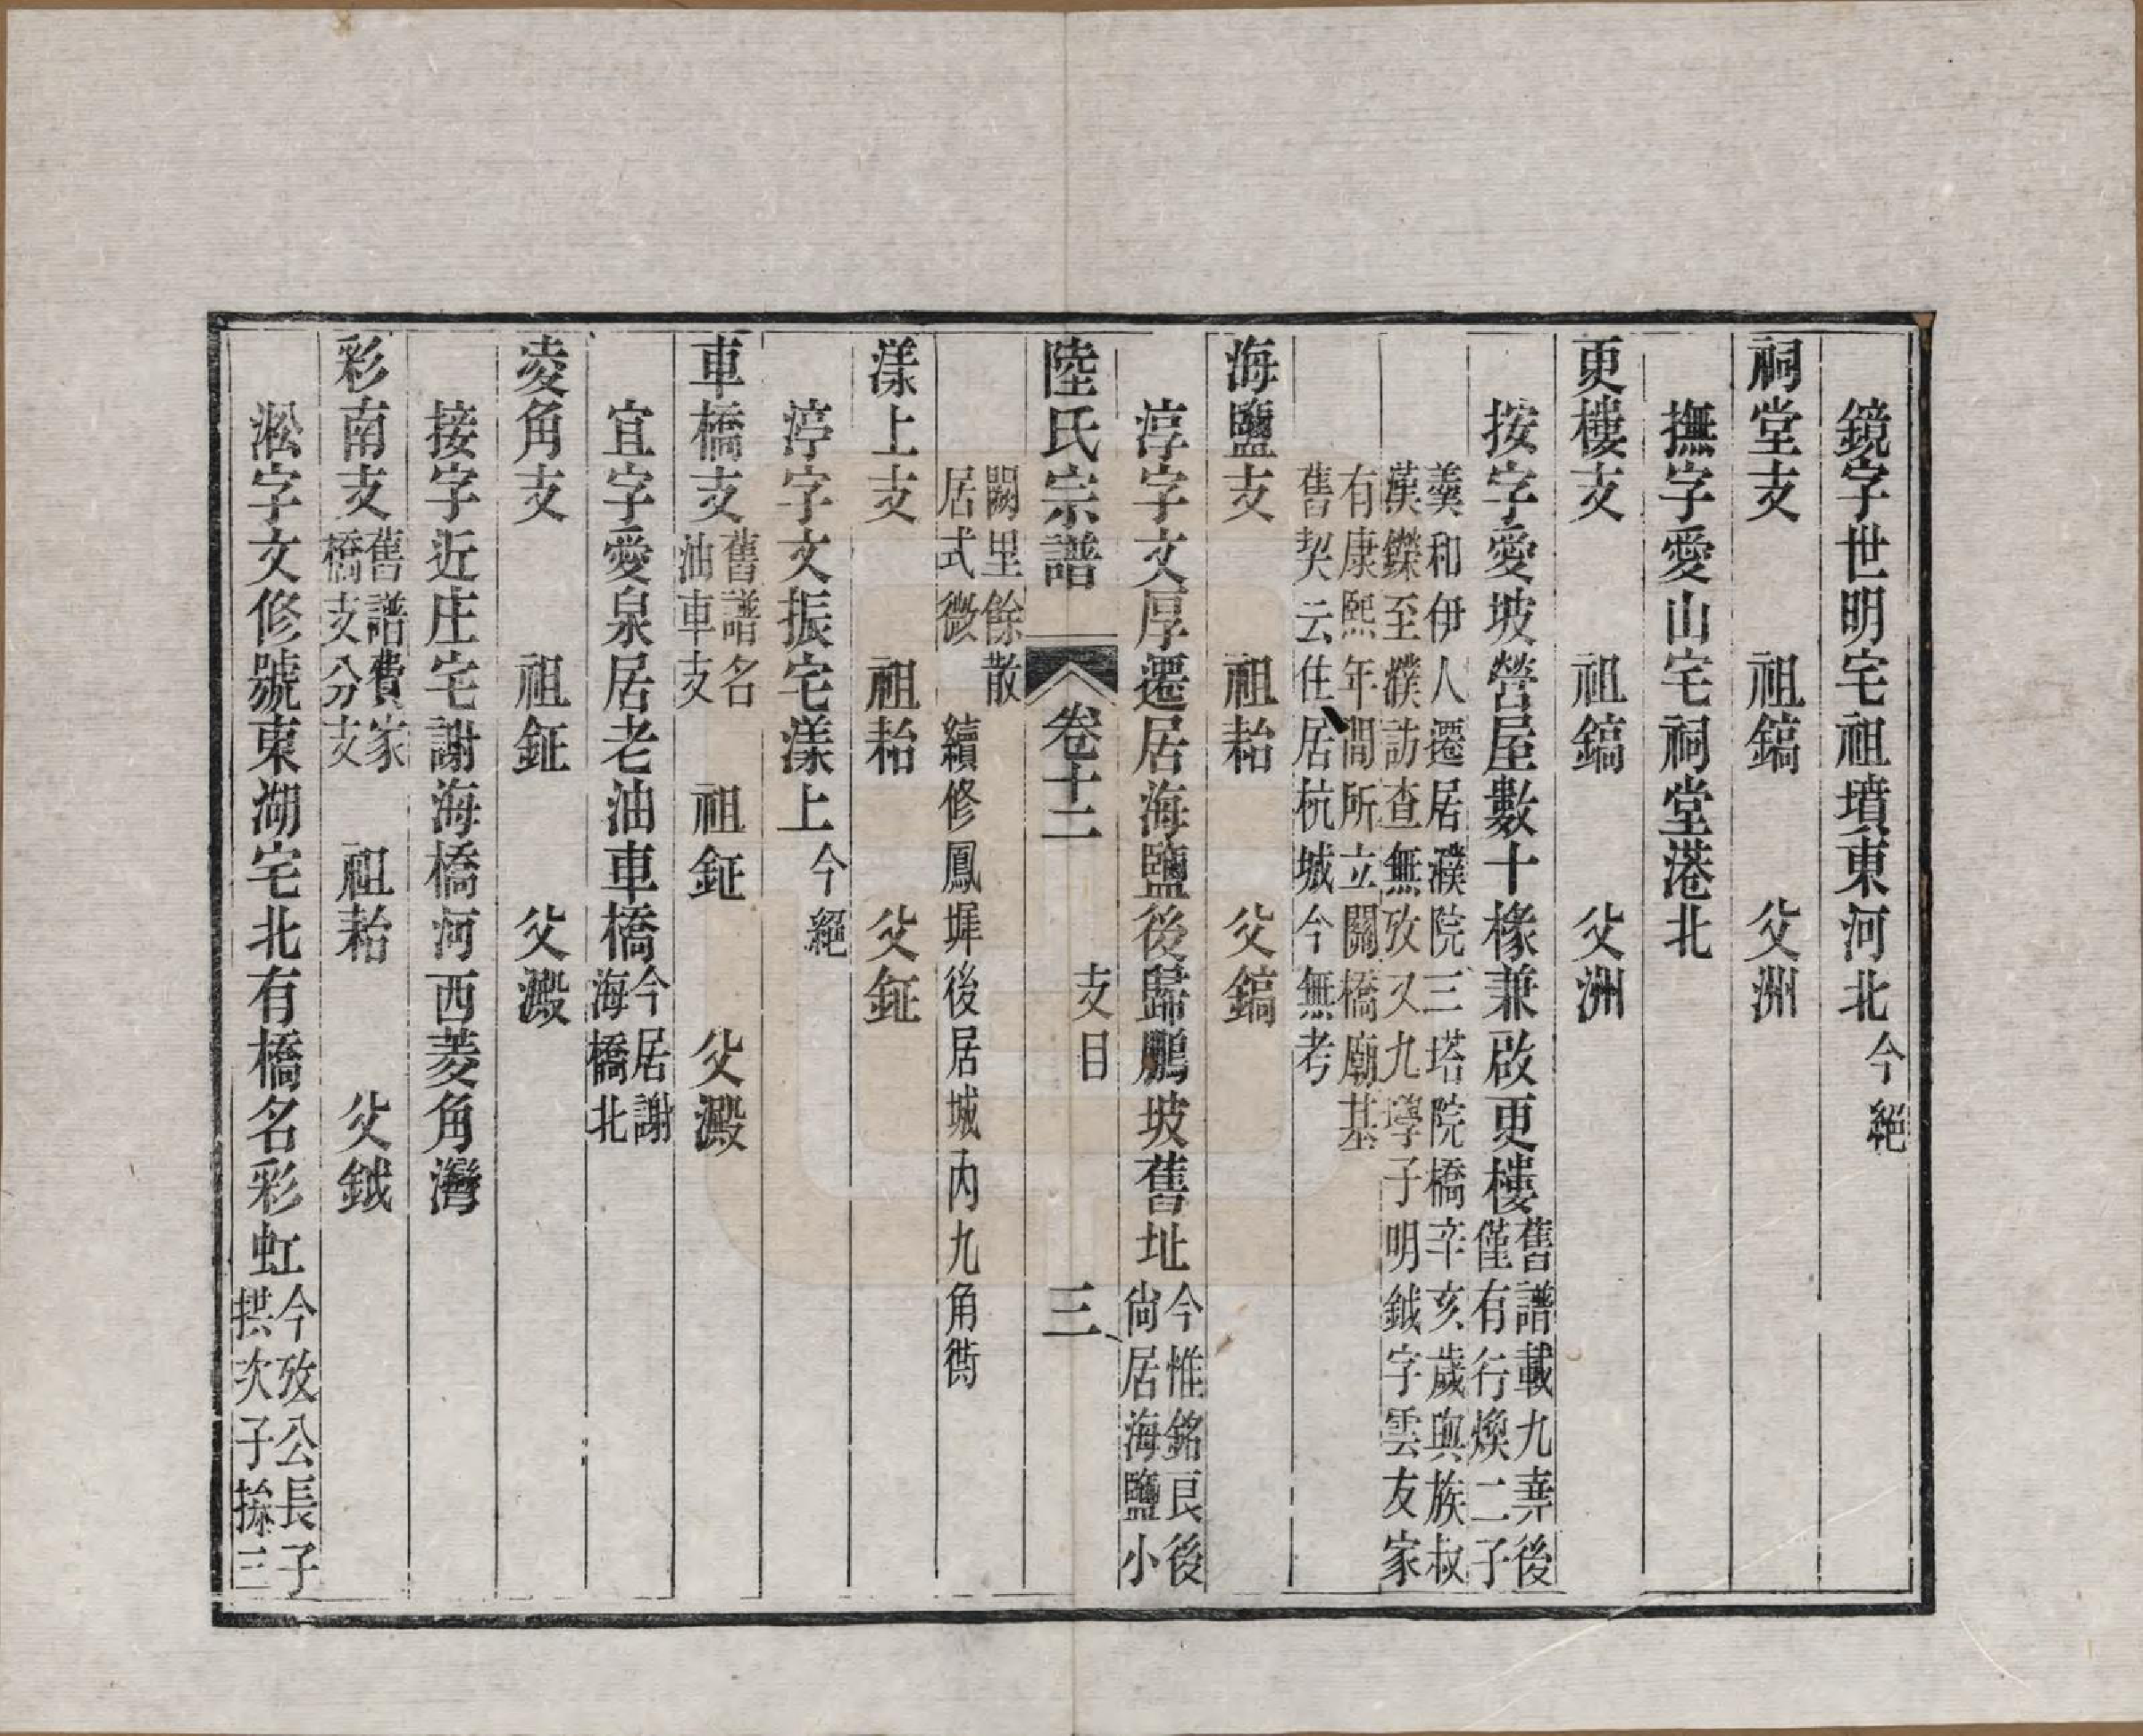 鏡字世明宅祖墳東河北今絕
祠堂支　祖鎬　父洲
撫字愛山宅祠堂港北
更樓支　祖鎬　父洲
按字愛坡營屋數十椽兼啟更樓舊譜載九弄後
僅有行煥二子
羲和伊人遷居濮院三塔院橋辛亥歲與族叔
漢鑠至濮訪查無攷又九𡥉子明鉞字雲友家
有康熙年間所立關橋廟基
舊契云住居杭城今無考
海鹽支　祖耛　父鎬
淳字文厚遷居海鹽後歸鵬坡舊址今惟銘良後
尙居海鹽小
陸氏宗譜　卷十二　支目　三
闕里餘散
居式微　續修鳳墀後居城内九角衖
漾上支　祖耛　父鉦
渟字文振宅漾上今絕
車橋支舊譜名
油車支　祖鉦　父澱
宜字愛泉居老油車橋今居謝
海橋北
凌角支　祖鉦　父澱
接字近庄宅謝海橋河西菱角灣
彩南支舊譜費家
橋支分支　祖耛　父鉞
淞字文修號東湖宅北有橋名彩虹今攷公長子
拱次子採三